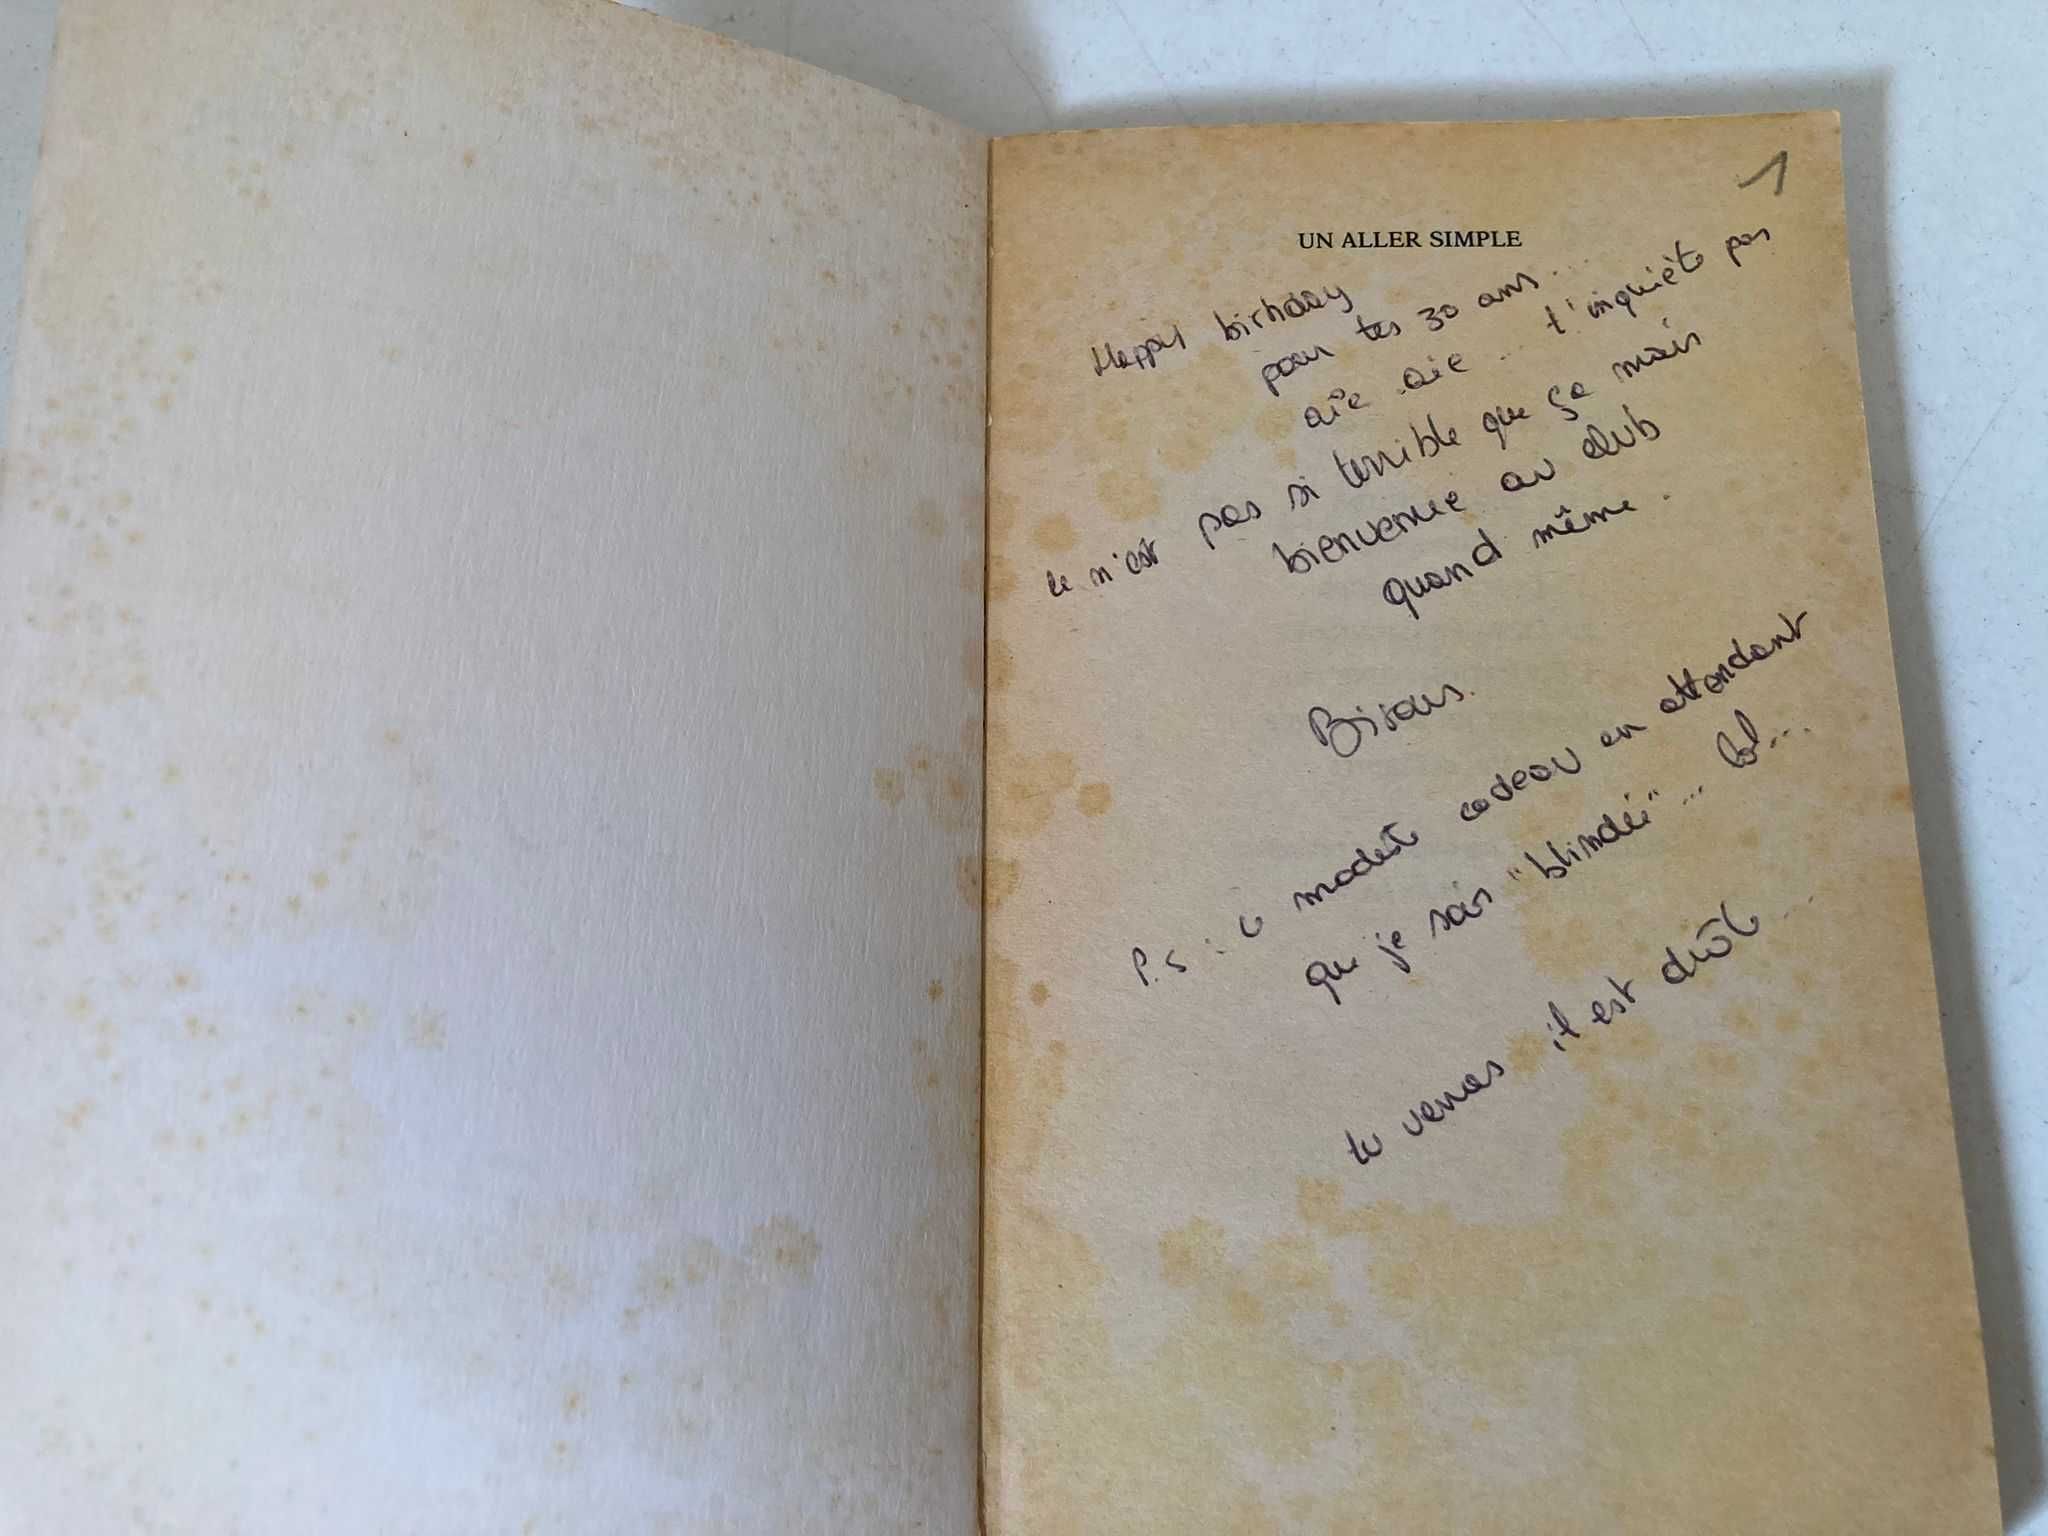 1
UN ALLER SIMPLE
Happy birhday
pour tes 30 ans...
aïe aïe... t'inquiète pas
ce n'est pas si terrible que ça mais
bienvenue au club
quand même.
Bisous.
P.S : ce modeste cadeau en attendant
que je sois "blindée"... lol...
tu verras, il est drôle...